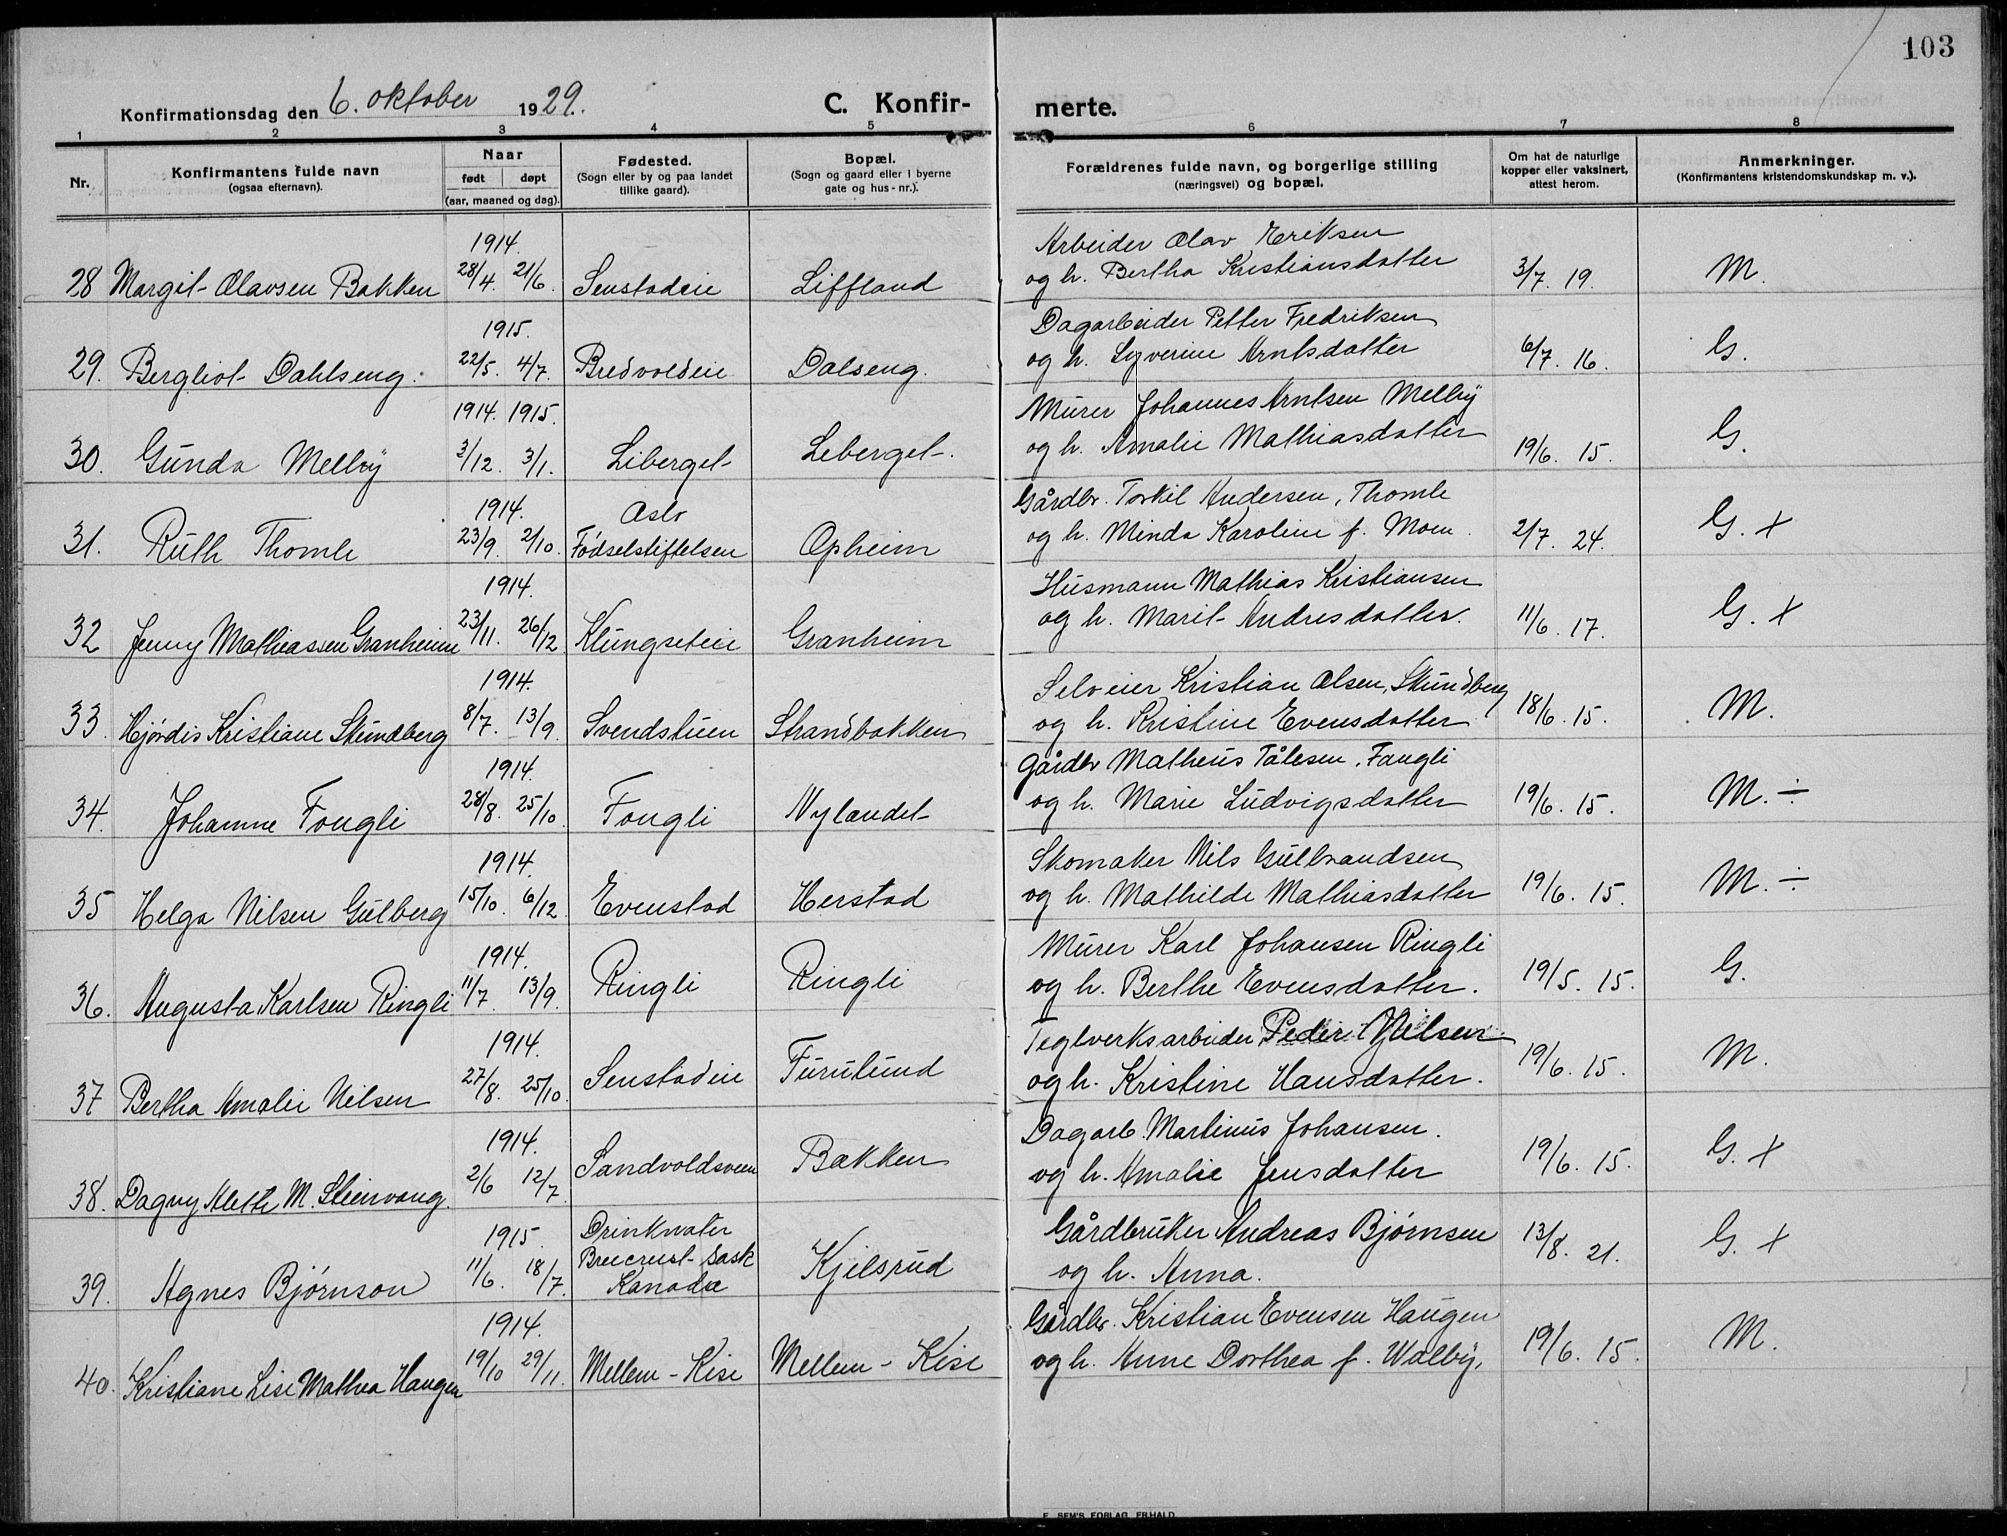 103
Konfirmationsdag den 6. oktober 1929.
C. Konfir-
merte.
1 2 3 4 5 6 7 8
Nr.
Konfirmantens fulde navn
(ogsaa efternavn).
Naar
født døpt
(aar, maaned og dag).
Fødested.
(Sogn eller by og paa landet
tillike gaard).
Bopæl.
(Sogn og gaard eller i byerne
gate og hus-nr.).
Forældrenes fulde navn, og borgerlige stilling
(næringsvei) og bopæl.
Om hat de naturlige
kopper eller vaksinert,
attest herom.
Anmerkninger.
(Konfirmantens kristendomskundskap m. v.).
1914.
Arbeider Olav Eriksen
28 Margit Olavsen Bakken 28/4. 21/6. Senstadeie Liffland og h. Bertha Kristiansdatter 3/7. 19. M.
1915.
Dagarbeider Petter Fredriksen
29. Bergliot Dahlseng. 22/5. 4/7. Bredvoldeie Dalseng. og h. Syverine Arntsdatter 6/7. 16. G.
1914. 1915.
Murer Johannes Arntsen Melby
30. Gunda Melby 3/12. 3/1. Liberget Leberget. og h. Amalie Mathiasdatter 19/6. 15. G.
1914. Oslo
Gårdbr. Torkil Andersen, Thomle
31. Ruth Thomle 23/9. 2/10. Fødselstiftelsen Opheim og h. Minda Karoline f. Moen. 2/7. 24. G. +
1914.
Husmann Mathias Kristiansen
32 Jenny Mathiassen Granheim 23/11. 26/12 Klungseteie Granheim og h. Marit Andresdatter. 11/6. 17. G. +
1914.
Selveier Kristian Olsen, Skundberg
33. Hjørdis Kristiane Skundberg 8/7. 13/9. Svendstuen Strandbakken og h. Kristine Evensdatter 18/6. 15. M.
1914.
Gårdbr Matheus Tålesen, Fangli
34. Johanne Fougli 28/8. 25/10. Fougli Nylandet og h. Marie Ludvigsdatter 19/6. 15. M. ÷
1914.
Skomaker Nils Gulbrandsen
35 Helga Nilsen Gulberg 15/10. 6/12. Evenstad Herstad og h. Mathilde Mathiasdatter 19/6. 15. M. ÷
1914.
Murer Karl Johansen Ringli
36. Augusta Karlsen Ringli 11/7. 13/9. Ringli Ringli og h. Berthe Evensdatter. 19/5. 15. G.
1914.
Teglverksarbeider Peder Nilsen
37 Bertha Amalie Nilsen 27/8. 25/10. Senstadeie Furulund og h. Kristine Hansdatter. 19/6. 15. M.
1914.
Dagarb. Martinus Johansen.
38. Dagny Alette M. Steinvang. 2/6 12/7. Sandvoldsveen Bakken og h. Amalie Jensdatter 19/6. 15. G. +
1915. Drinkwater
Bruerust Sask
Gårdbruker Andreas Bjørnsen
39. Agnes Bjørnson 11/6. 18/7. Kanada Kjelsrud og h. Anna. 13/8. 21. G. +
1914.
Gårdbr. Kristian Evensen Haugen
40. Kristiane Lise Mathea Haugen 19/10 29/11. Mellem-Kise Mellem-Kise og h. Anne Dorthea f. Walby. 19/6. 15. M.
F. SEM'S FORLAG, FR.HALD